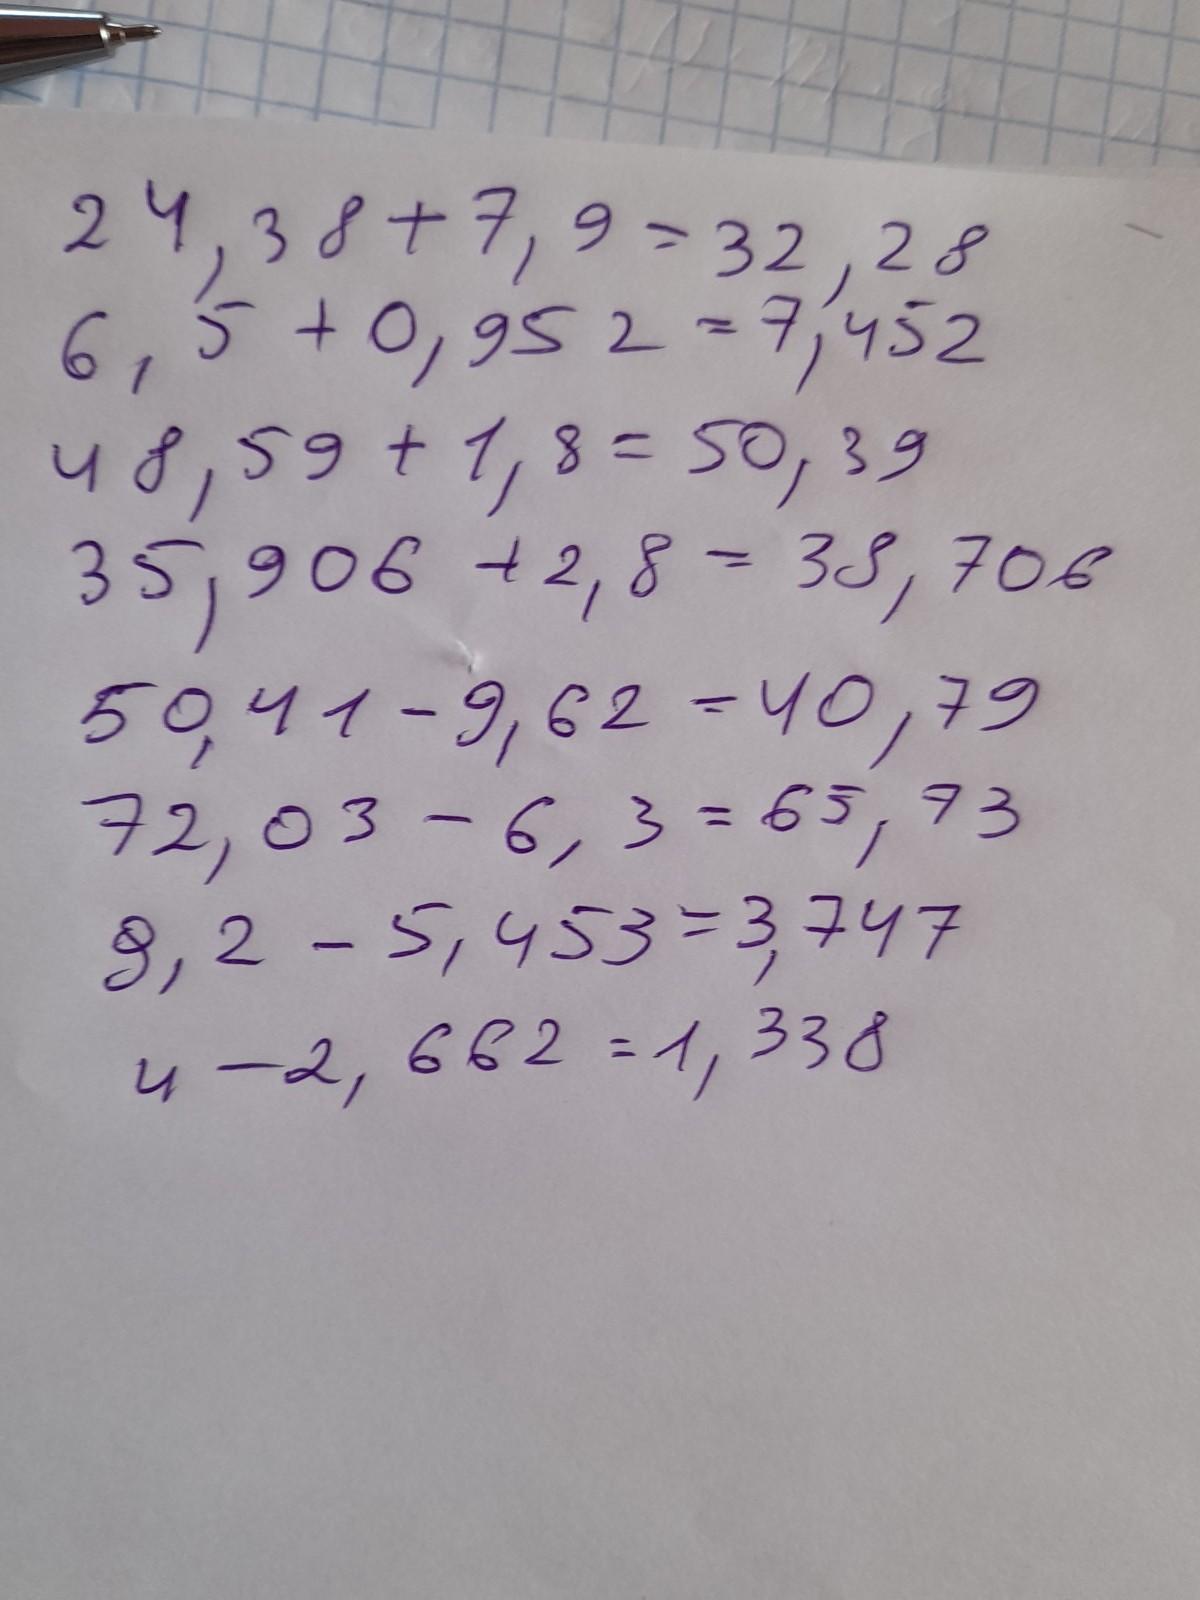 24,38+7,9=32,28
6,5+0,952=7,452
48,59+1,8=50,39
35,906+2,8=38,706
50,41-9,62=40,79
72,03-6,3=65,73
9,2-5,453=3,747
4-2,662=1,338